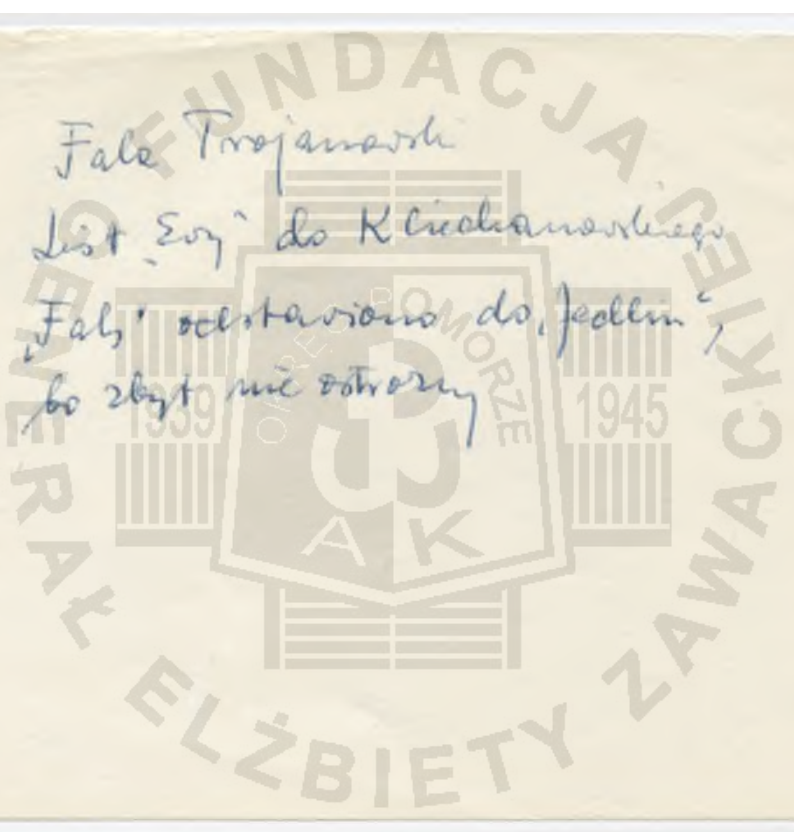 Fala Trojanowski
List „Ewy” do K Ciechanowskiego
„Falę” odstawiono do „Jedlin”,
bo zbyt nie ostrożny
FUNDACJA GENERAŁ ELŻBIETY ZAWACKIEJ
OKRĘG POMORZE
1939 1945
AK